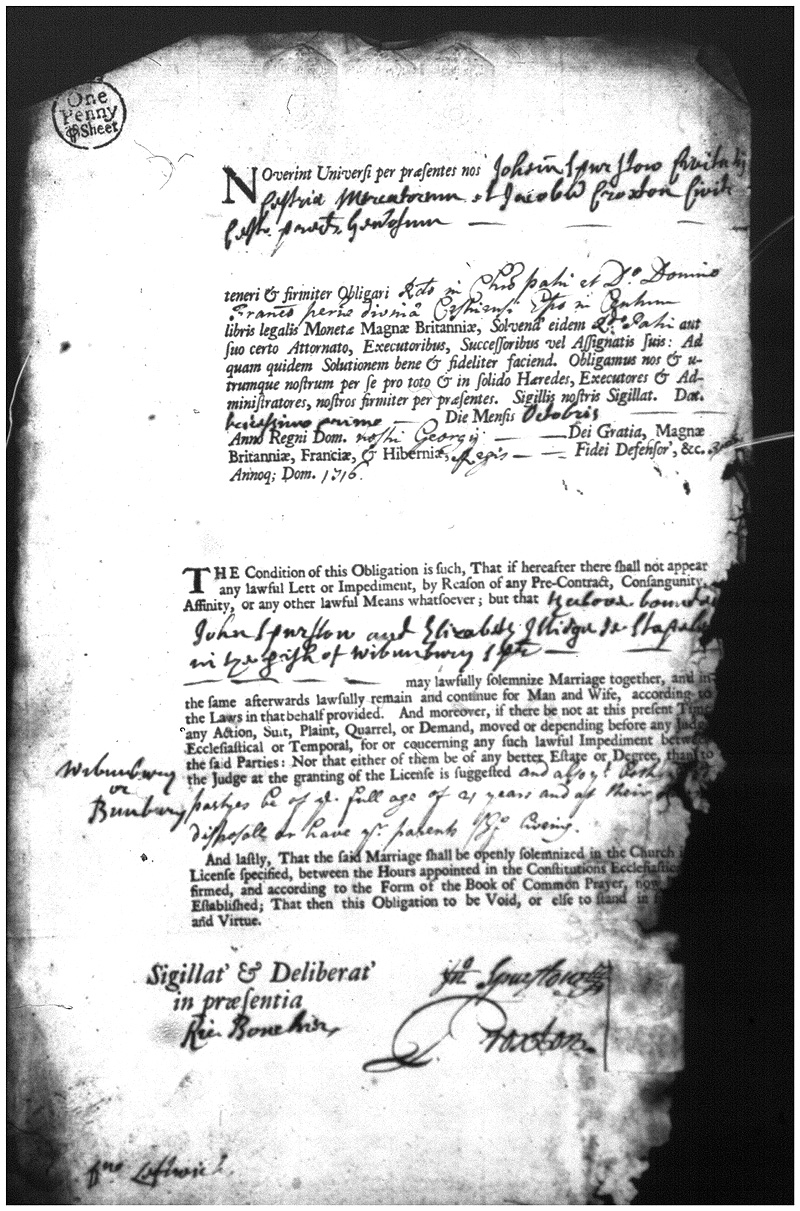 One
Penny
℔ Sheet
NOverint Universi per præsentes nos Johem Spurstow Civitatis
Cestriæ Mercatorem et Jacobū Croxton Civit
Cestr præd Generosum
teneri & firmiter Obligari in Chro patri et Do. Domino
Franco divina Epo in Centum
libris legalis Monetæ Magnæ Britanniæ, Solvend' eidem Patri aut
suo certo Attornato, Executoribus, Successoribus vel Assignatis suis: Ad
quam quidem Solutionem bene & fideliter faciend. Obligamus nos & u-
trumque nostrum per se pro toto & in solido Hæredes, Executores & Ad-
ministratores, nostros firmiter per præsentes. Sigillis nostris Sigillat. Dat.
vicessimo primo Die Mensis Octobris
Anno Regni Dom. nostri Georgij Dei Gratia, Magnæ
Britanniæ, Franciæ, & Hiberniæ, Regis Fidei Defensor', &c.
Annoq; Dom. 1716
THE Condition of this Obligation is such, That if hereafter there shall not appear
any lawful Lett or Impediment, by Reason of any Pre-Contract, Consanguinity,
Affinity, or any other lawful Means whatsoever; but that ye above bounden
John Spurstow and Elizabeth de Stapeley
in ye p'ish of Wibunbury Spr
may lawfully solemnize Marriage together, and in
the same afterwards lawfully remain and continue for Man and Wife, according to
the Laws in that behalf provided. And moreover, if there be not at this present Time
any Action, Suit, Plaint, Quarrel, or Demand, moved or depending before any Judge
Ecclesiastical or Temporal, for or concerning any such lawful Impediment between
the said Parties: Nor that either of them be of any better Estate or Degree, than to
the Judge at the granting of the License is suggested and also yt both
Wibunbury
or
Bunbury
partyes be of ye full age of 21 years and at their
disposall or have yr parents
And lastly, That the said Marriage shall be openly solemnized in the Church
License specified, between the Hours appointed in the Constitutions Ecclesiastic
firmed, and according to the Form of the Book of Common Prayer, now
Established; That then this Obligation to be Void, or else to stand in
and Virtue.
Sigillat' & Deliberat'
in præsentia
Jno Spurstow
Ric: Croxton